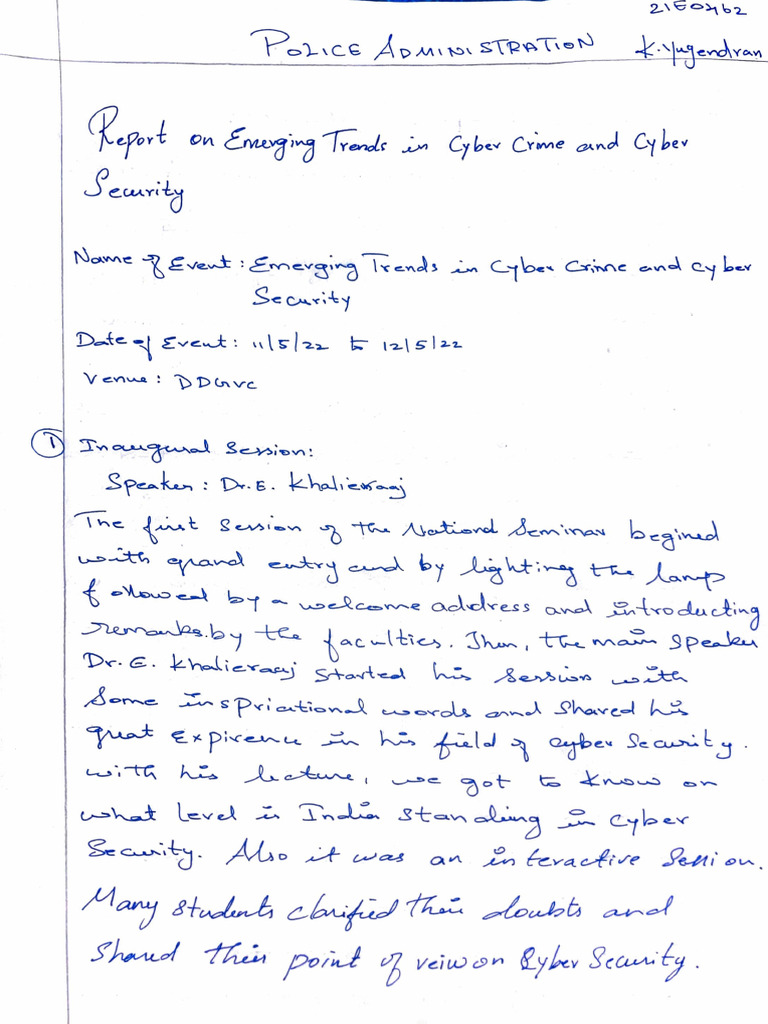 21E0462
POLICE ADMINISTRATION K. Yugendran
Report on Emerging Trends in Cyber Crime and Cyber
Security
Name of Event : Emerging Trends in Cyber Crime and Cyber
Security
Date of Event : 11/5/22 to 12/5/22
Venue : DDGVC
① Inaugural Session:
Speaker : Dr. E. Khalieraaj
The first session of the National Seminar begined
with grand entry and by lighting the lamp
followed by a welcome address and introducting
remarks. by the faculties. Then, the main speaker
Dr. E. Khalieraaj started his session with
Some inspriational words and shared his
great Expirence in his field of cyber Security.
with his lecture, we got to know on
what level is India standing in cyber
Security. Also it was an interactive Session.
Many students clarified their doubts and
shared their point of veiw on Cyber Security.